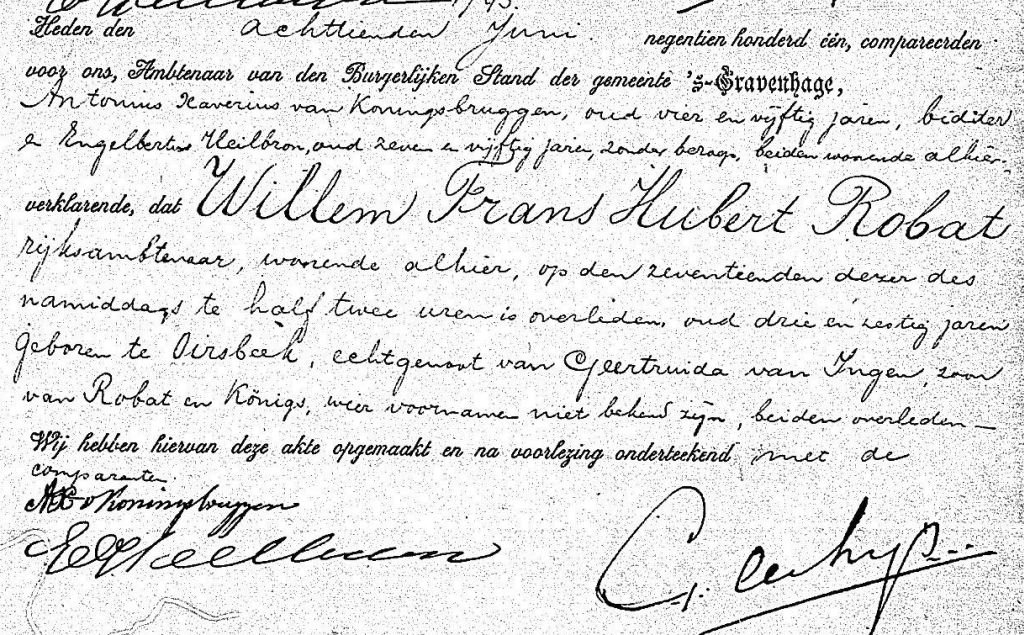 Heden den achttienden Juni negentien honderd één, compareerden
voor ons, Ambtenaar van den Burgerlijken Stand der gemeente 's-Gravenhage,
Antonius Xaverius van Koningsbruggen, oud vier en vijftig jaren, bidder
en Engelbertus Heilbron, oud zeven en vijftig jaren, zonder beroep, beiden wonende alhier.
verklarende, dat Willem Frans Hubert Robat
rijksambtenaar, wonende alhier, op den zeventienden dezer des
namiddags te half twee uren is overleden, oud drie en zestig jaren
geboren te Oirsbeek, echtgenoot van Geertruida van Ingen, zoon
van Robat en Königs, wier voornamen niet bekend zijn, beiden overleden—
Wij hebben hiervan deze akte opgemaakt en na voorlezing onderteekend met de
comparanten.
AX v Koningsbruggen